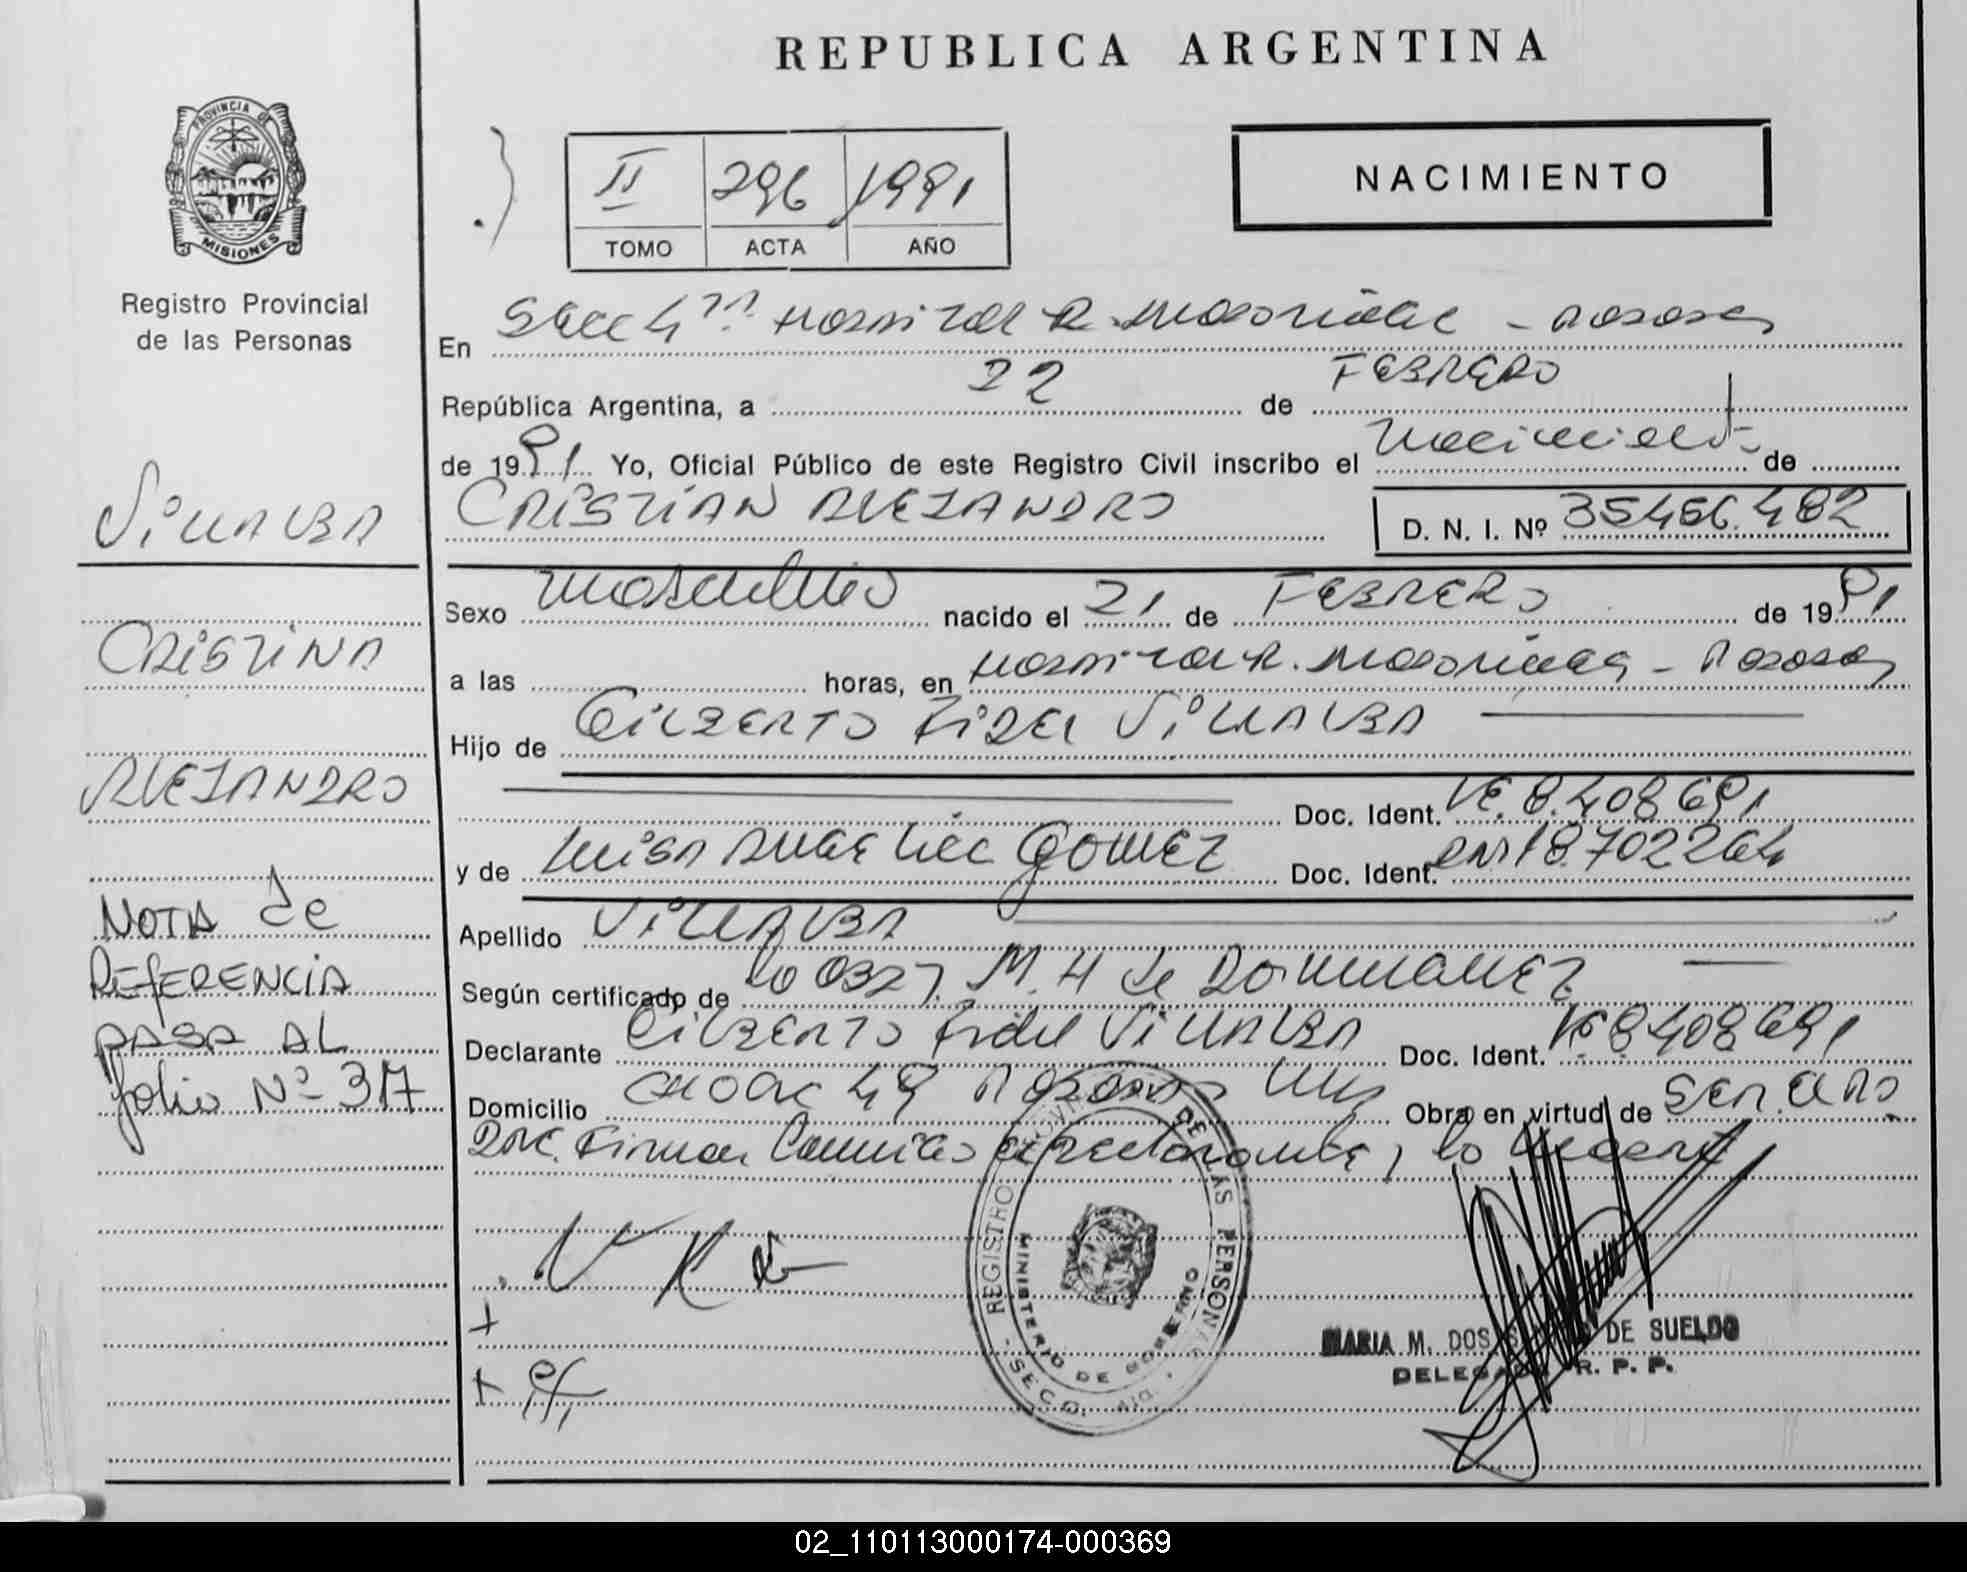 REPUBLICA ARGENTINA
PROVINCIA DE
MISIONES
Registro Provincial
de las Personas
II 296 1991
TOMO ACTA AÑO
NACIMIENTO
En Secc 4ta Hospital R. Madariaga - Posadas
República Argentina, a 22 de FEBRERO
de 1991 Yo, Oficial Público de este Registro Civil inscribo el Nacimiento de
CRISTIAN ALEJANDRO
D. N. I. Nº 35456.482
VILLALBA
CRISTINA
ALEJANDRO
Sexo Masculino nacido el 21 de FEBRERO de 1991
a las horas, en Hospital R. Madariaga - Posadas
Hijo de GILBERTO FIDEL VILLALBA
Doc. Ident. LE. 8.408691
y de LUISA ANGELICA GOMEZ Doc. Ident. DNI 18.702264
NOTA de
REFERENCIA
PASA AL
folio Nº 317
Apellido VILLALBA
Según certificado de 0327. M. H de DOMINGUEZ
Declarante GILBERTO Fidel VILLALBA Doc. Ident. LE 8408691
Domicilio 49 Posadas Obra en virtud de
Firman Conmigo el declarante,
REGISTRO PROVINCIAL DE LAS PERSONAS
MINISTERIO DE GOBIERNO
MARIA M. DOS DE SUELDO
DELEGADA R. P. P.
02_110113000174-000369